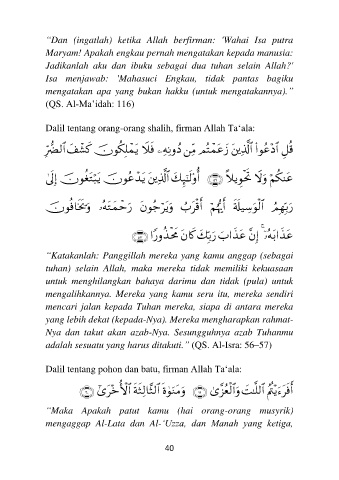 “Dan (ingatlah) ketika Allah berfirman: 'Wahai Isa putra
Maryam! Apakah engkau pernah mengatakan kepada manusia:
Jadikanlah aku dan ibuku sebagai dua tuhan selain Allah?'
Isa menjawab: 'Mahasuci Engkau, tidak pantas bagiku
mengatakan apa yang bukan hakku (untuk mengatakannya).”
(QS. Al-Ma’idah: 116)
Dalil tentang orang-orang shalih, firman Allah Ta‘ala:
قُلِ ٱدْعُوا۟ ٱلَّذِينَ زَعَمْتُم مِّن دُونِهِۦ فَلَا يَمْلِكُونَ كَشْفَ ٱلضُّرِّ
عَنكُمْ وَلَا تَحْوِيلًا ۝ أُو۟لَـٰٓئِكَ ٱلَّذِينَ يَدْعُونَ يَبْتَغُونَ إِلَىٰ
رَبِّهِمُ ٱلْوَسِيلَةَ أَيُّهُمْ أَقْرَبُ وَيَرْجُونَ رَحْمَتَهُۥ وَيَخَافُونَ
عَذَابَهُۥٓ ۚ إِنَّ عَذَابَ رَبِّكَ كَانَ مَحْذُورًا ۝
“Katakanlah: Panggillah mereka yang kamu anggap (sebagai
tuhan) selain Allah, maka mereka tidak memiliki kekuasaan
untuk menghilangkan bahaya darimu dan tidak (pula) untuk
mengalihkannya. Mereka yang kamu seru itu, mereka sendiri
mencari jalan kepada Tuhan mereka, siapa di antara mereka
yang lebih dekat (kepada-Nya). Mereka mengharapkan rahmat-
Nya dan takut akan azab-Nya. Sesungguhnya azab Tuhanmu
adalah sesuatu yang harus ditakuti.” (QS. Al-Isra: 56–57)
Dalil tentang pohon dan batu, firman Allah Ta‘ala:
أَفَرَءَيْتُمُ ٱللَّـٰتَ وَٱلْعُزَّىٰ ۝ وَمَنَوٰةَ ٱلثَّالِثَةَ ٱلْأُخْرَىٰٓ ۝
“Maka Apakah patut kamu (hai orang-orang musyrik)
mengaggap Al-Lata dan Al-‘Uzza, dan Manah yang ketiga,
40